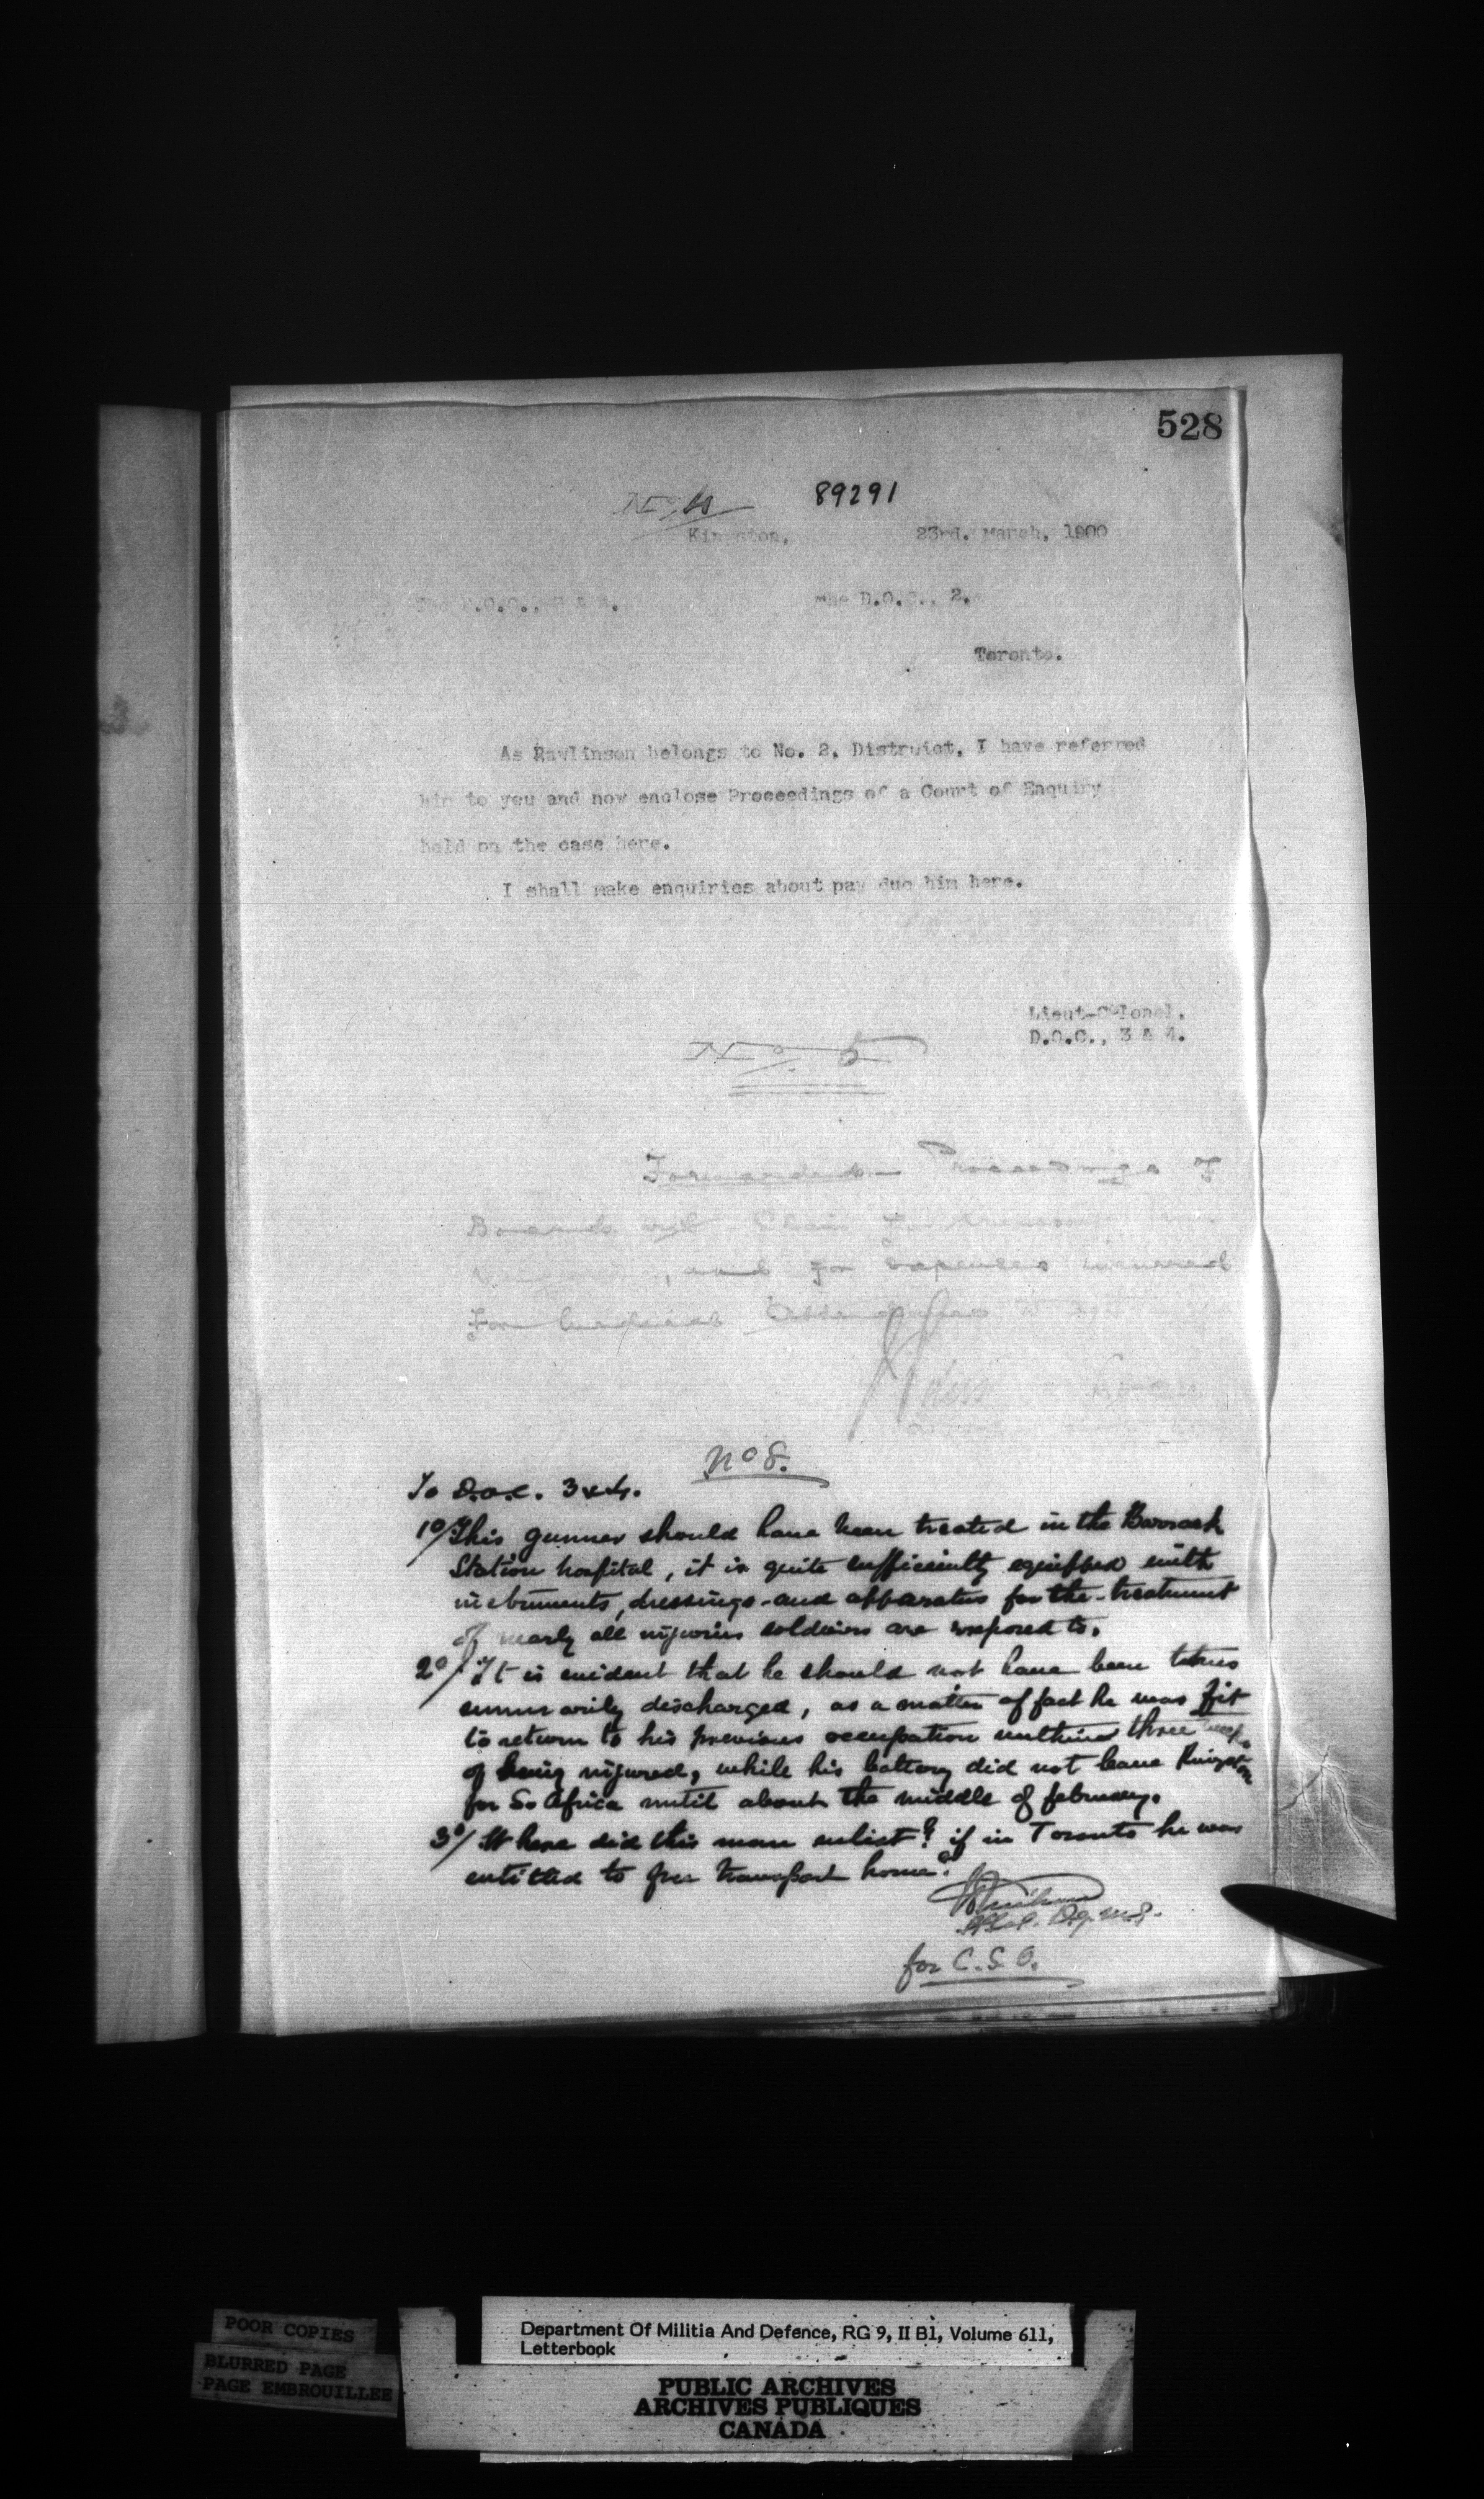 528
No. 4
89291
Kingston, 23rd. March, 1900
The D.O.C., 3 & 4. The D.O.C., 2.
Toronto.
As Rawlinson belongs to No. 2. Distruict, I have referred
him to you and now enclose Proceedings of a Court of Enquiry
held on the case here.
I shall make enquiries about pay due him here.
Lieut-Colonel.
D.O.C., 3 & 4.
No. 5
Forwarded - Proceedings of
Board
, and for expenses incurred
For
No 8.
To D.O.C. 3 & 4.
1o/ This gunner should have been treated in the Barrack
Station hospital, it is quite sufficiently equipped with
instruments, dressings and apparatus for the treatment
of nearly all injuries soldiers are exposed to.
2o/ It is evident that he should not have been
summarily discharged, as a matter of fact he was fit
to return to his previous occupation within three
of being injured, while his battery did not leave Kingston
for So Africa until about the middle of february.
3o/ Where did this man enlist? if in Toronto he was
entitled to free transport home?
for C.S.O.
POOR COPIES
BLURRED PAGE
PAGE EMBROUILLEE
Department Of Militia And Defence, RG 9, II B1, Volume 611,
Letterbook
PUBLIC ARCHIVES
ARCHIVES PUBLIQUES
CANADA